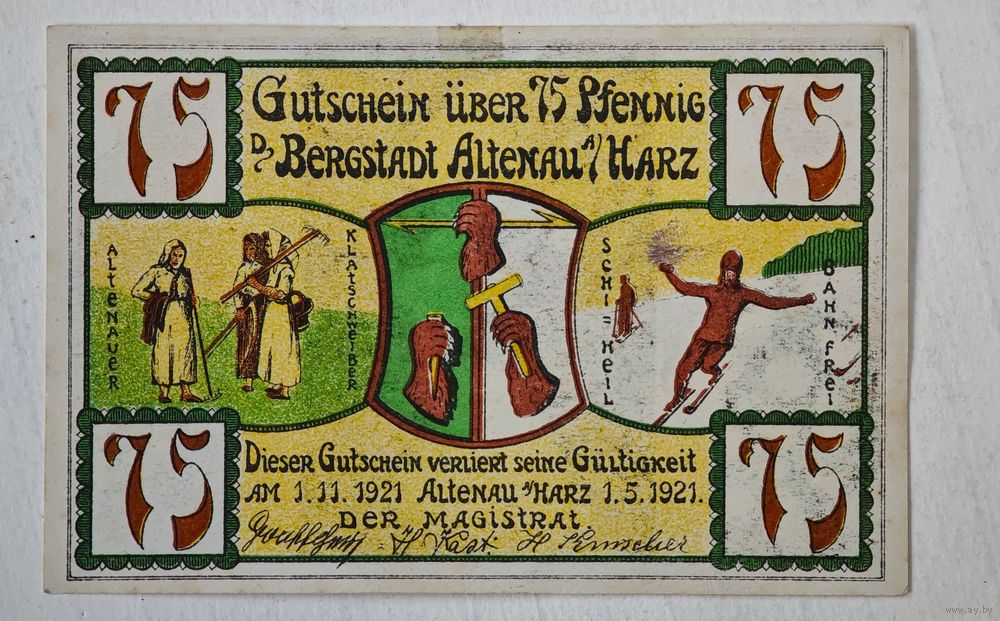 75 75
Gutschein über 75 Pfennig
D. Bergstadt Altenau a/Harz
Altenauer
Klatschweiber
Schi=Heil
Bahn frei
75 75
Dieser Gutschein verliert seine Gültigkeit
am 1.11.1921 Altenau a/Harz 1.5.1921.
Der Magistrat.
www.ay.by